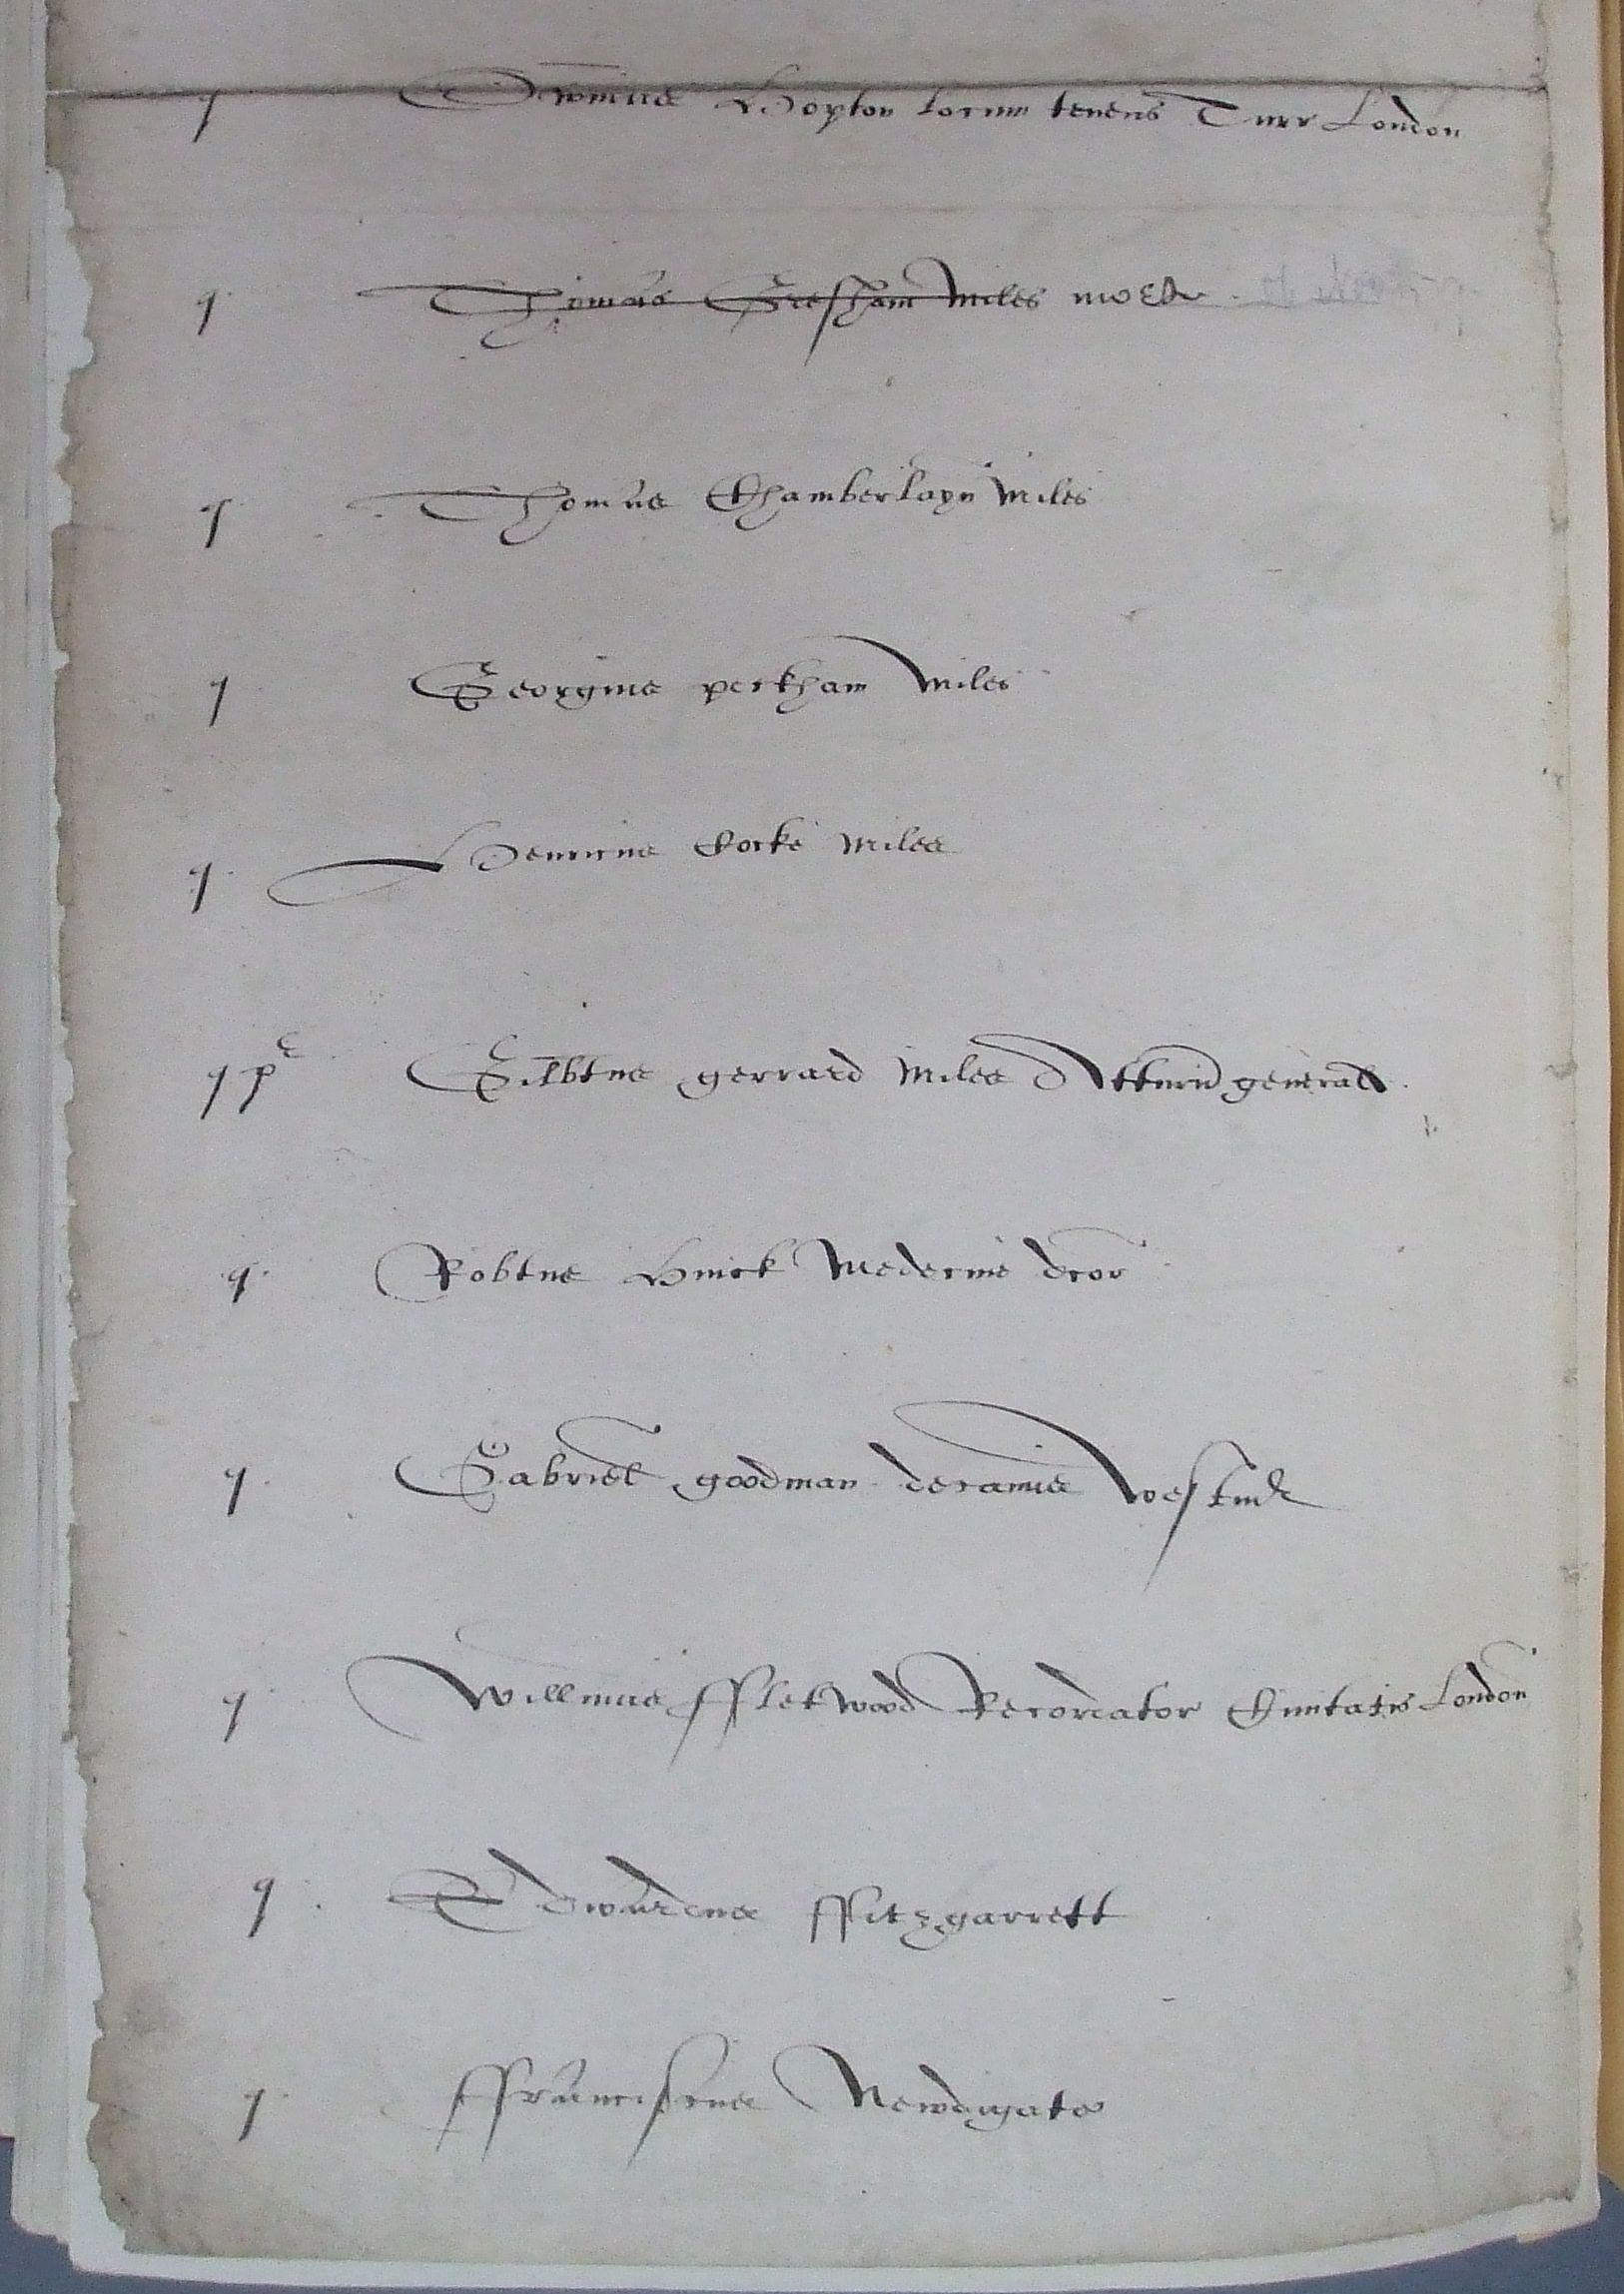 q Owinus Hopton locum tenens Turr London
q Thomas Gresham Miles mort
q Thomas Chamberlayn Miles
q Georgius peckham Miles
q Henricus Cocke Miles
q p Gilbtus gerrard Miles Atturn general
q Robtus Huick Medecine dcor
q Gabriel goodman decanus Westm
q Willmus ffletwood Recordator Civitatis London
q Edwardus ffitzgarrett
q ffranciscus Newdigate